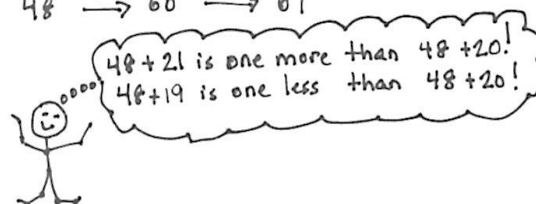 48 → 68 → 
48 + 21 is one more than 48 + 20!
48 + 19 is one less than 48 + 20!